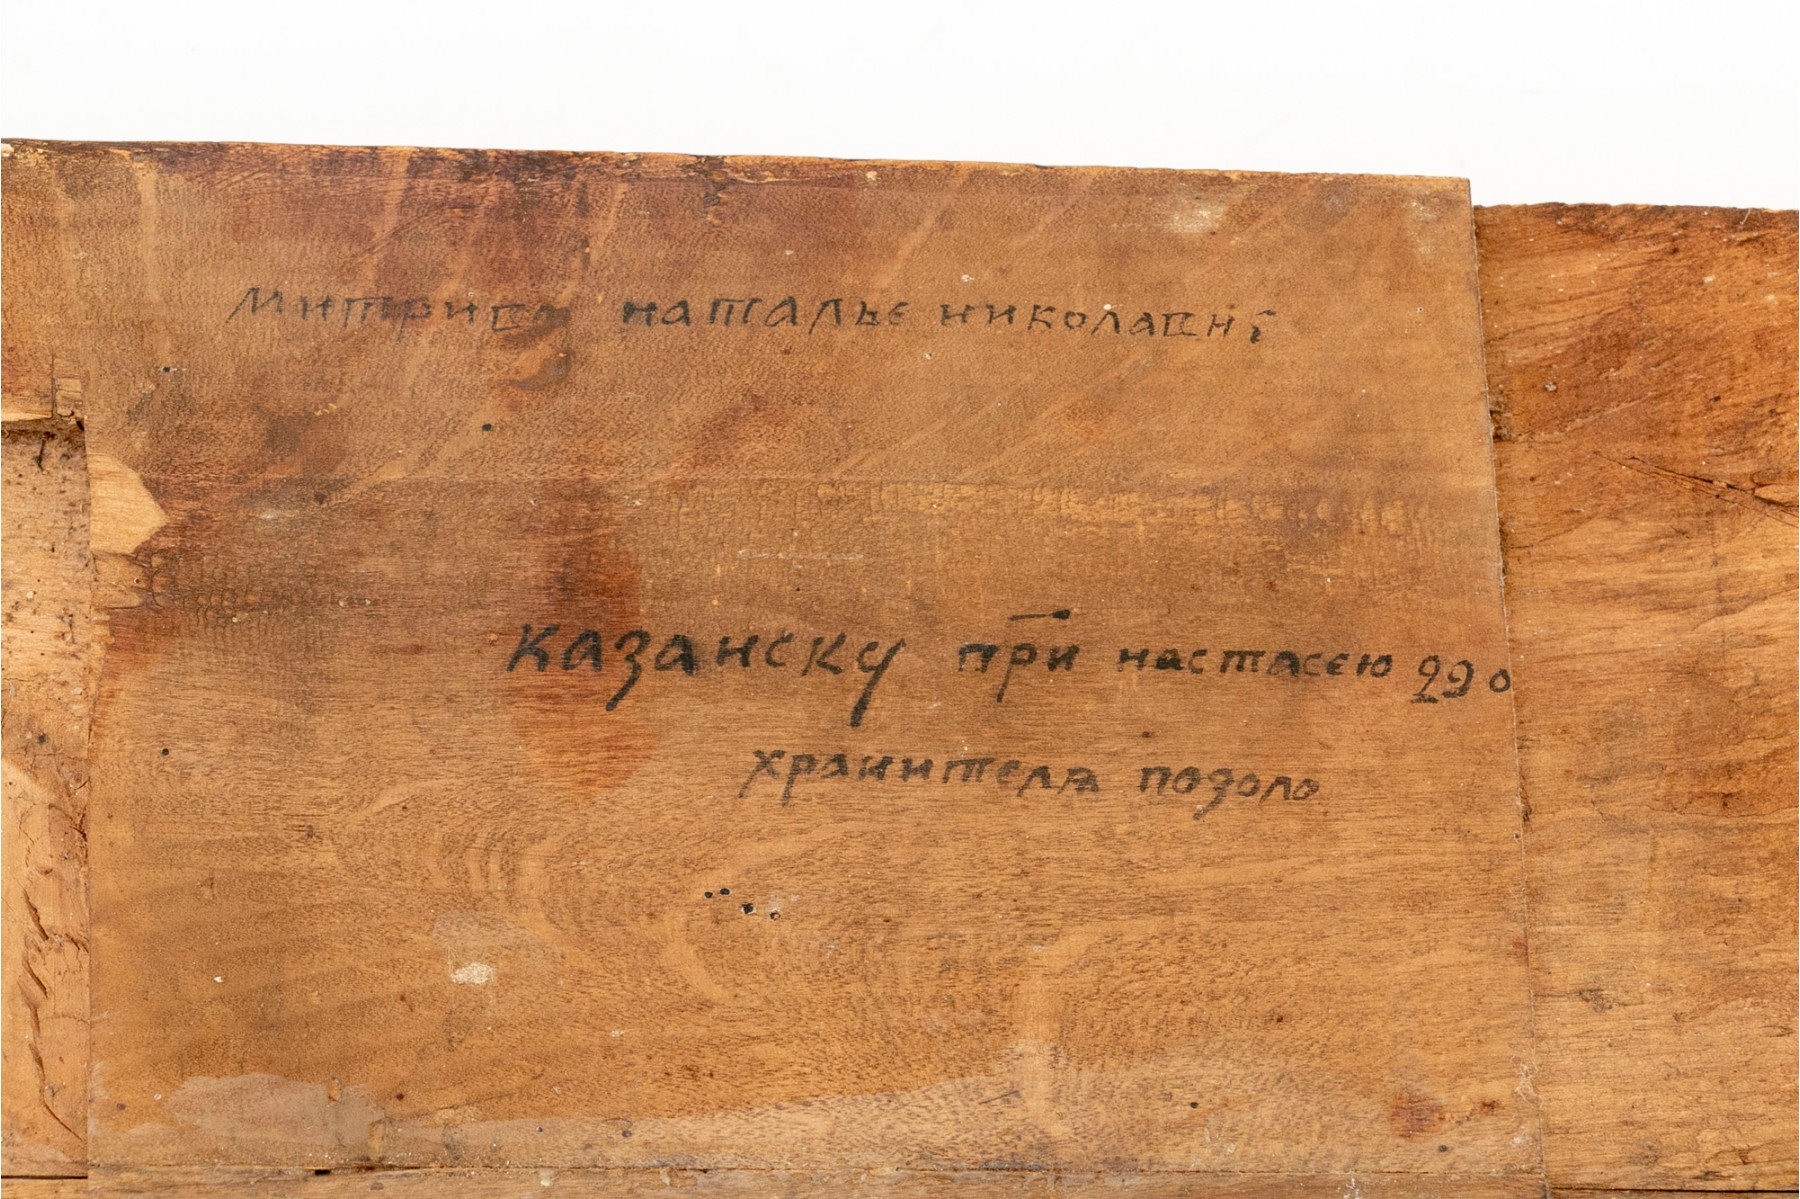 митрива наталье николавнӷ
казанску при настасею 22 о
хранителя позоло